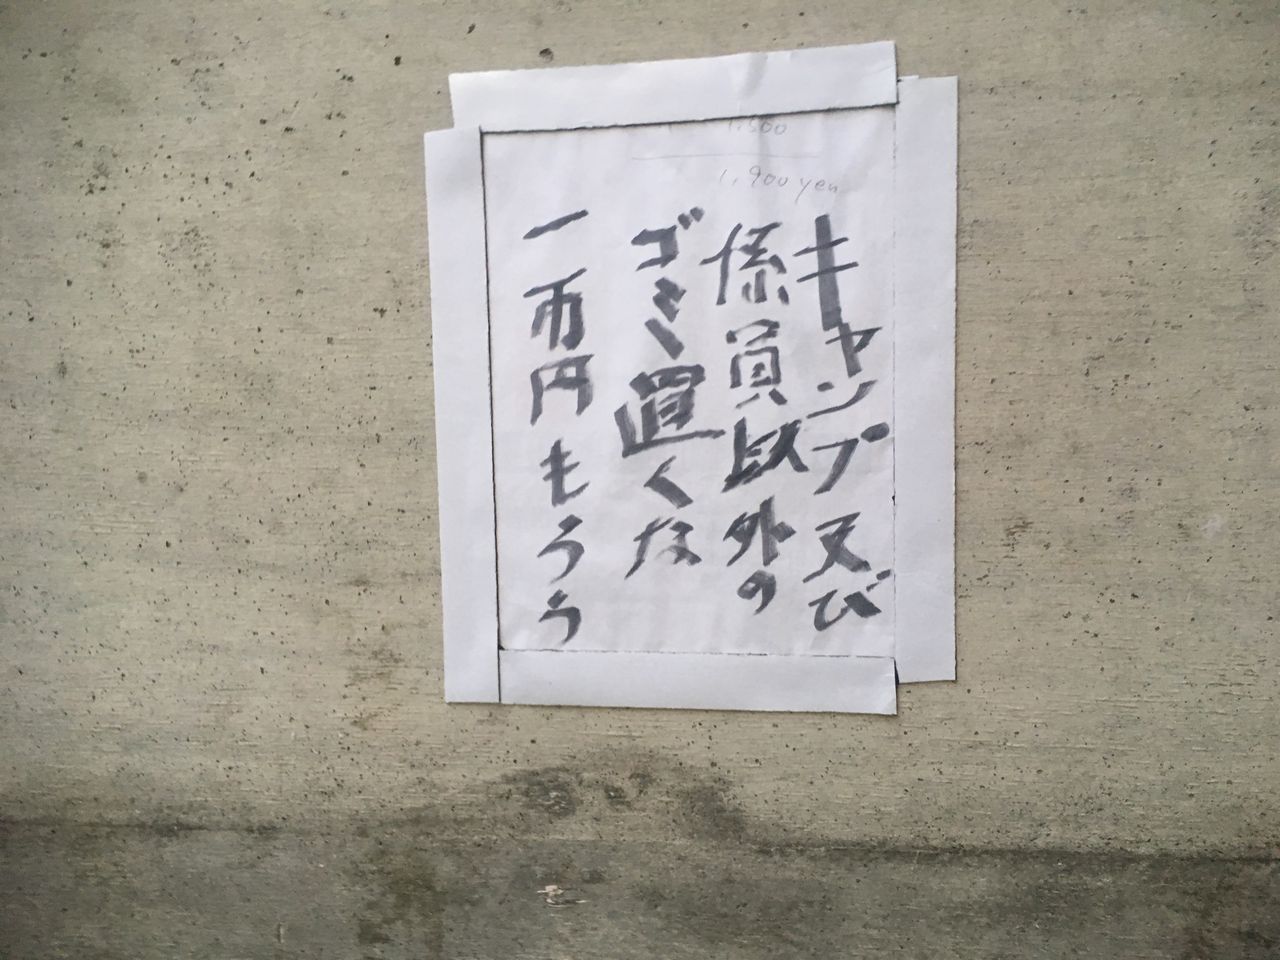 1,500
1,900 yen
キャンプ及び
係員以外の
ゴミ置くな
一万円もらう